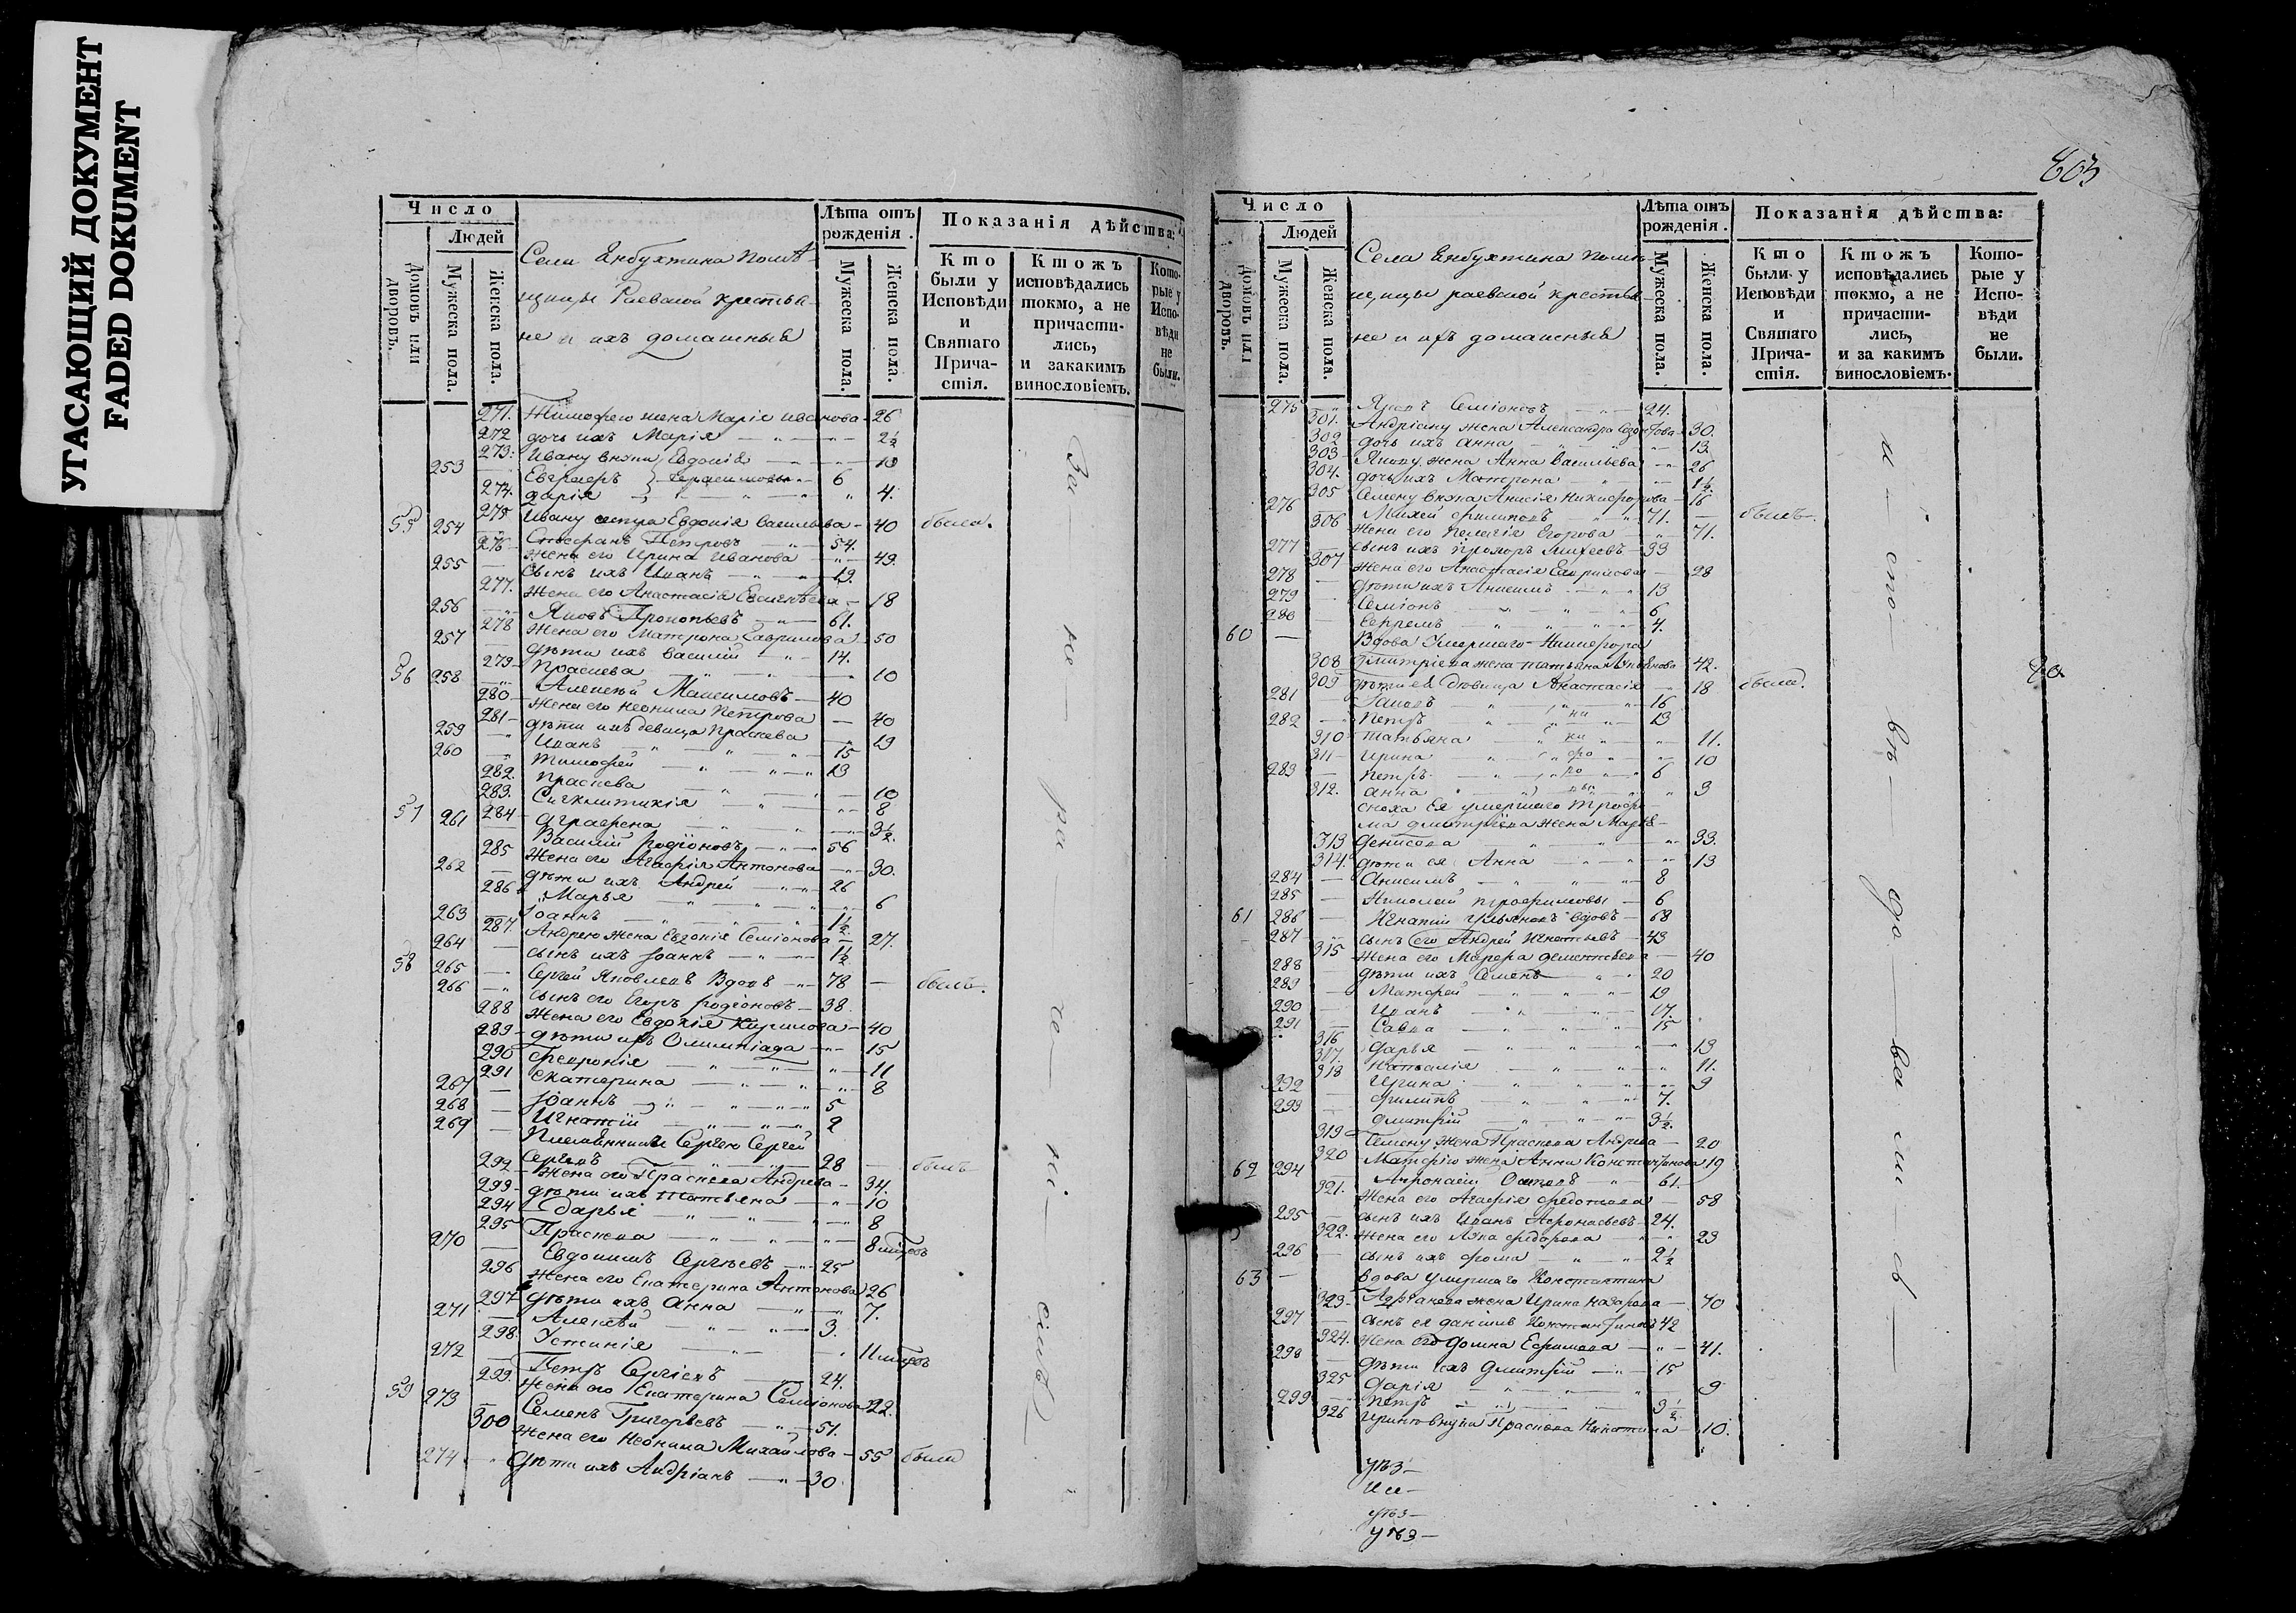 УГАСАЮЩИЙ ДОКУМЕНТ
FADED DOKUMENT
Число
Людей
Домовъ или дворовъ.
Мужеска пола.
Женска пола.
Села Енбухтина помѣ-
щицы Раевской крестья-
не и ихъ домашныѣ
Лѣта отъ рожденія.
Мужеска пола.
Женска пола.
Показанія дѣйства:
Кто были у Исповѣди и Святаго Причастія.
Ктожъ исповѣдались токмо, а не причастились, и закакимъ винословіемъ.
Которые у Исповѣди не были.
271. Тимофею жена Марія Иванова - 26
272 дочь ихъ Марія 2½
273. Ивану внуки Евдокія 10
253 Евграферъ Герасимовы 6
274. Дарія 4.
275 Ивану сестра Евдокія Васильева - 40 была.
55 254 Стефанъ Петровъ 54.
276 Жена его Ирина Иванова 49.
255 сынъ ихъ Иванъ 19.
277. Жена его Анастасія 18
256 Яковъ Прокопьевъ 61.
278 Жена его Матрона Гаврилова 50
257 дѣти ихъ Василий 14.
279 Праскева 10
56 258 Алексѣй Максимовъ 40
280 Жена его Неонила Петрова 40
281 дѣти ихъ девица Праскева 19
259 Иванъ 15
260 Тимофей 13
282. Праскева 10
283. Сигклитикія 8
284 Аграфена 3½
57 261 Василий Родіоновъ 56
285 Жена его Агафія Антонова 30.
262 дѣти ихъ Андрей 26
286 Марья 6
263 Іоаннъ 1½
287. Андрею жена Евдокія Семіонова 27.
264 сынъ ихъ Іоаннъ 1½
58 265 Сергей Яковлевъ Вдовъ 78 былъ.
266 сынъ его Егоръ Родіоновъ 38
288 Жена его Евдокія Кирилова 40
289 дѣти ихъ Олимпіада 15
290 Февронія 11
291 Екатерина 8
267 Іоаннъ 5
268 Игнатій 2
269 Племянники Сергею Сергей
Сергеевъ 28 былъ
292 Жена его Праскева Андрева 34.
293 дѣти ихъ Татьяна 10
294 Дарья 8
295 Праскева 8
270 Евдокимъ Сергѣевъ 25
296 Жена его Екатерина Антонова 26
297 дѣти ихъ Анна 7.
271 Алексѣй 3.
298. Устинія
272 Петръ Сергіевъ 24.
299. Жена его Екатерина Семіонова 22.
59 273 Семенъ Григорьевъ 51.
300 Жена его Неонила Михайлова 55 была
274 Дѣти ихъ Андріанъ 30
603
Число
Людей
домовъ или дворовъ.
Мужеска пола.
Женска пола.
Села Енбухтина помѣ-
щицы раевской крестья-
не и ихъ домашныѣ
Лѣта отъ рожденія.
Мужеска пола.
Женска пола.
Показанія дѣйства:
Кто были у Исповѣди и Святаго Причастія.
Ктожъ исповѣдались токмо, а не причастились, и за какимъ винословіемъ.
Которые у Исповѣди не были.
275 Яковъ Семіоновъ 24.
301. Андріану жена Александра 30.
302 дочь ихъ Анна 13.
303 Якову жена Анна Васильева 26
304. дочь ихъ Матрона 1½
305 Семену внука Анисія Никифорова 16
276 Михей Филиповъ 71. былъ.
306 Жена его Пелагія Егорова 71.
277 сынъ ихъ Прохоръ Михеевъ 33
307 Жена его Анастасія 28
278 дѣти ихъ Анисимъ 13
279 Семіонъ 6
280 Ефремъ 4.
60 Вдова умершаго Никифора
308 Дмитріева жена Татьяна 42.
309 дѣти ея дѣвица Анастасія 18 была.
281 Іаковъ 16
282 Петръ 13
310 Татьяна 11.
311 Ирина 10
283 Петръ 6
312. Анна 3
сноха Ея умершаго Трофи-
ма Дмитріева жена Марѳа
313 Денисова 33.
314. дѣти ея Анна 13
284 Анисимъ 8
285 Николай Трофимовы 6
61 286 Игнатій Ульяновъ вдовъ 68
287 сынъ его Андрей Игнатьевъ 43
315 Жена его Марфа Дементьева 40
288 дѣти ихъ Семенъ 20
289 Матфей 19
290 Иванъ 17.
291 Савва 15
316 Дарья 13
317. Наталія 11.
318 Ирина 9
292 Филипъ 7.
293 Дмитрій 3½
319 Семену жена Праскева Андрева 20
320 Матфею жена Анна Константинова 19
62 294 Афонасій Осиповъ 61.
321. Жена его Агафія Федотова 58
295 сынъ ихъ Иванъ Афонасьевъ 24.
322. Жена его Анна Федорова 23
296 сынъ ихъ Фома 2½
63 вдова умершаго Константина
323 жена Ирина Назарова 70
297 сынъ ея Даніилъ Константиновъ 42
324. Жена его Домна Ефимова 41.
298 дѣти ихъ Дмитрій 15
325 Дарія 9
299 Петръ 3½
326 Ирины внука Праскева Никитина 10.